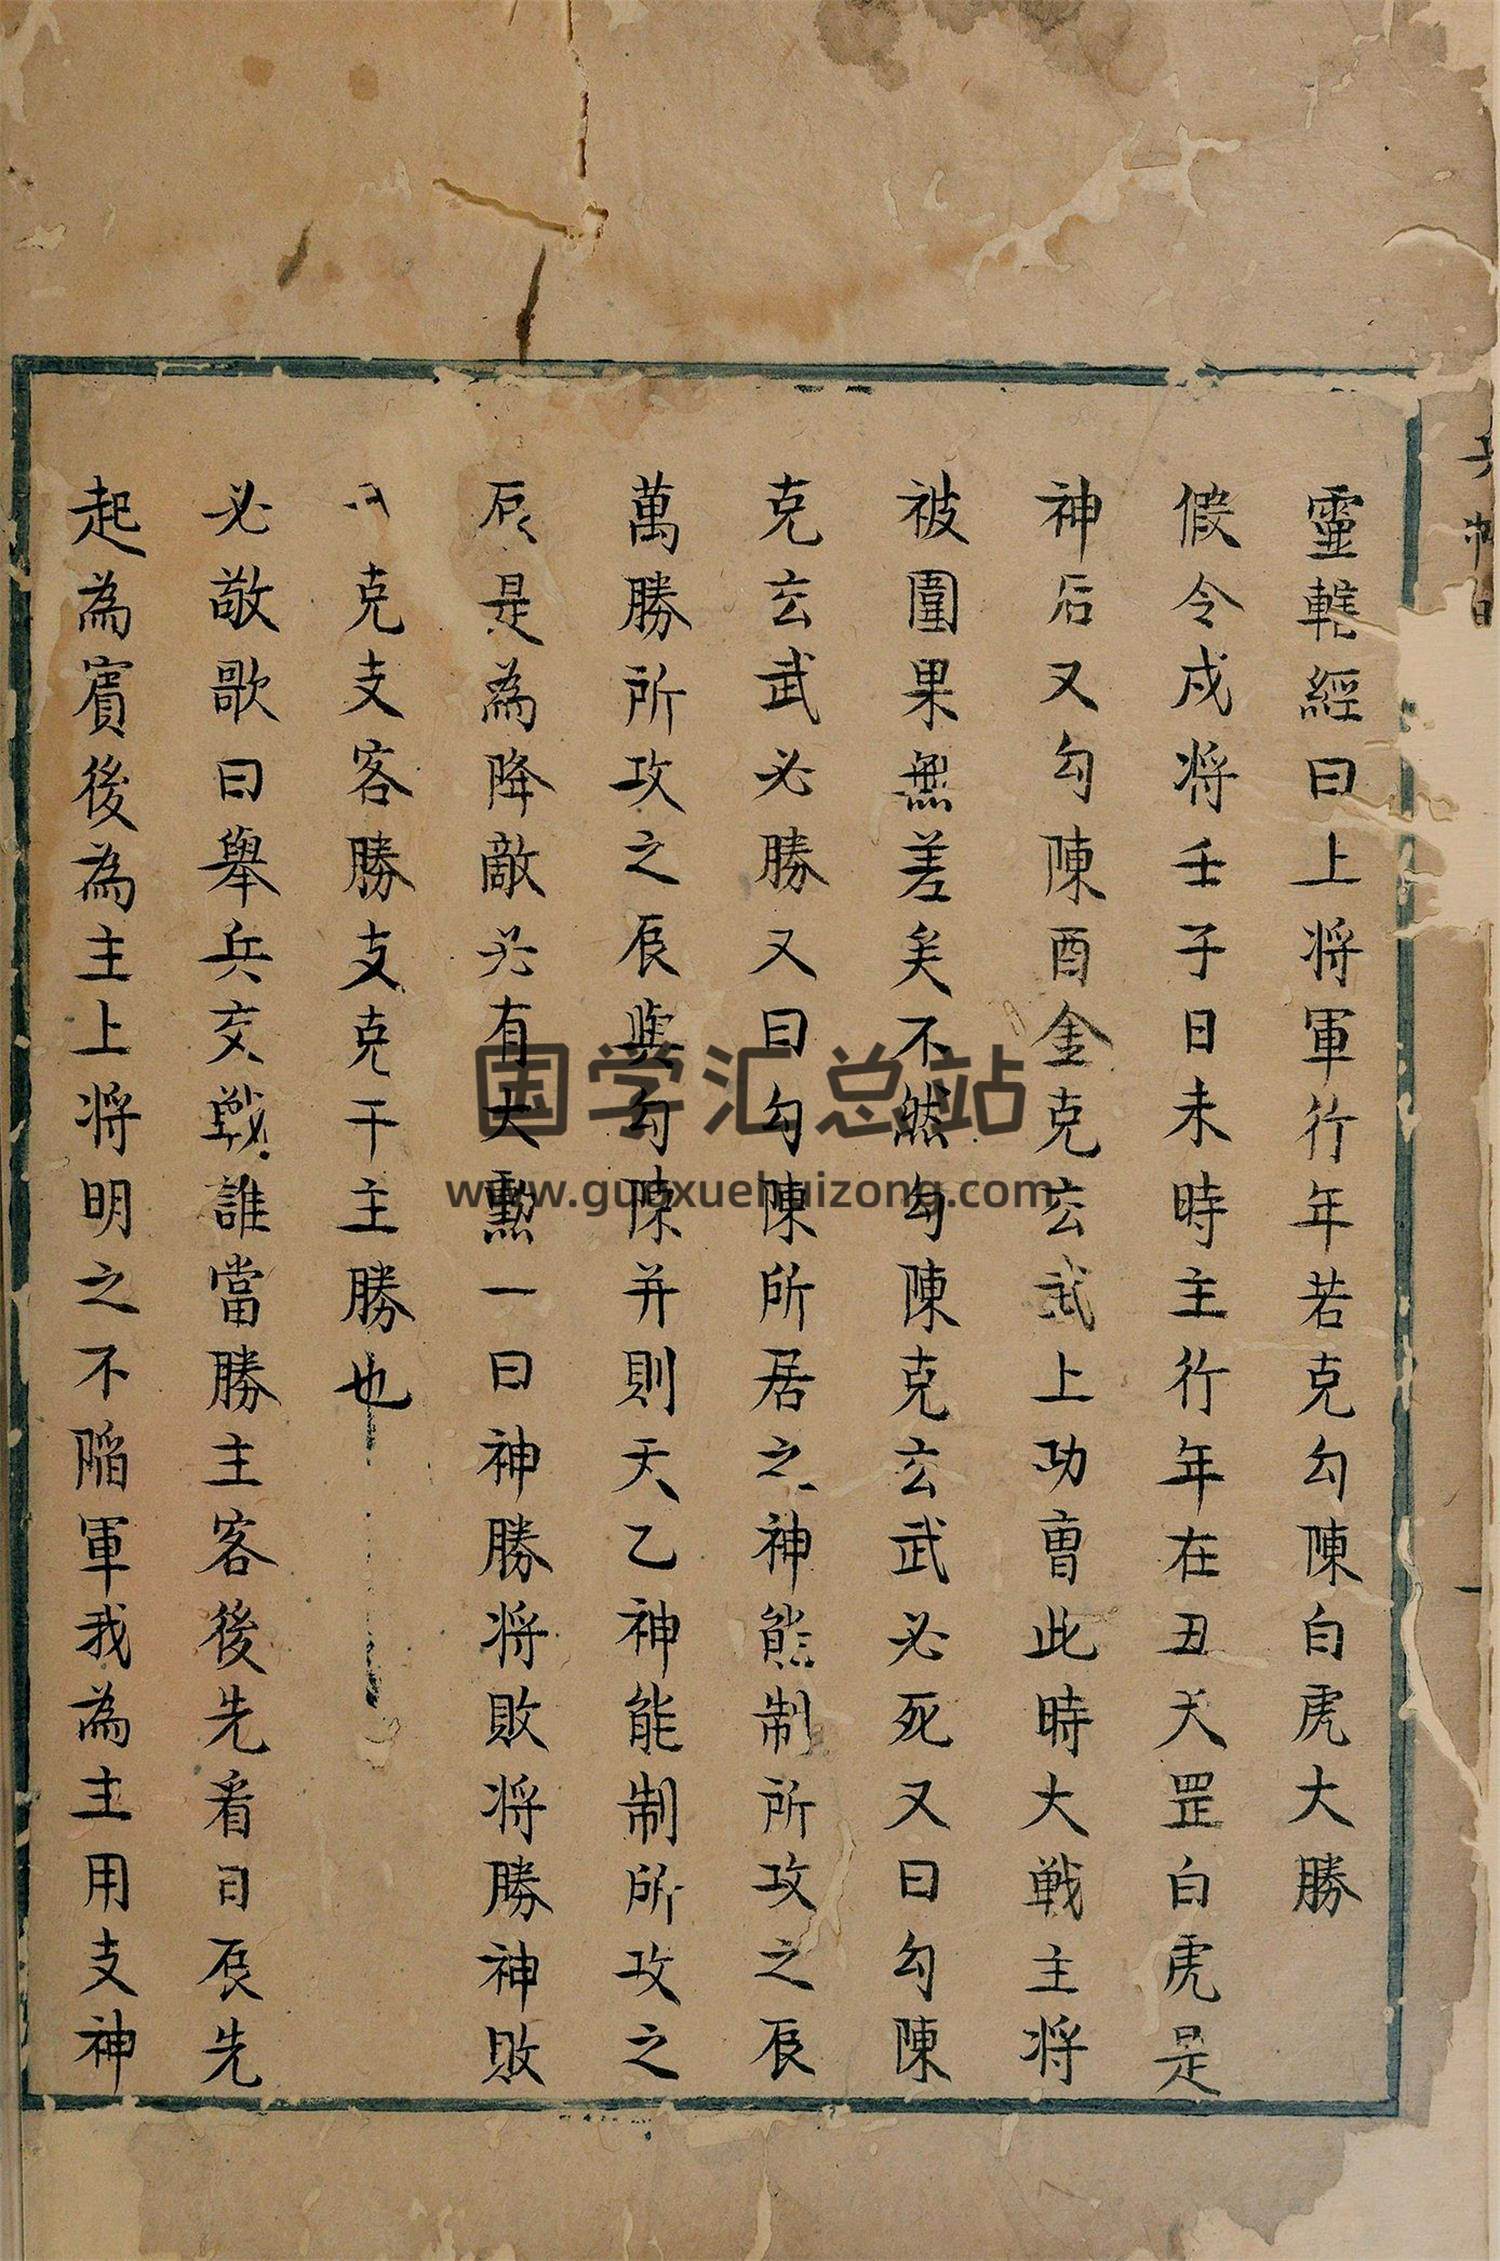 靈轄經曰上将軍行年若克勾陳白虎大勝
假令戍将壬子日未時主行年在丑天罡白虎是
神后又勾陳酉金克玄武上功曺此時大戦主将
被圍果無差矣不然勾陳克玄武必死又曰勾陳
克玄武必勝又曰勾陳所居之神能制所攻之辰
萬勝所攻之辰與勾陳并則天乙神能制所攻之
辰是為降敵必有大勲一曰神勝将敗将勝神敗
克支客勝支克干主勝也
必敬歌曰舉兵交戦誰當勝主客後先看日辰先
起為賓後為主上将明之不陷軍我為主用支神
国学汇总站
www.guoxuehuizong.com